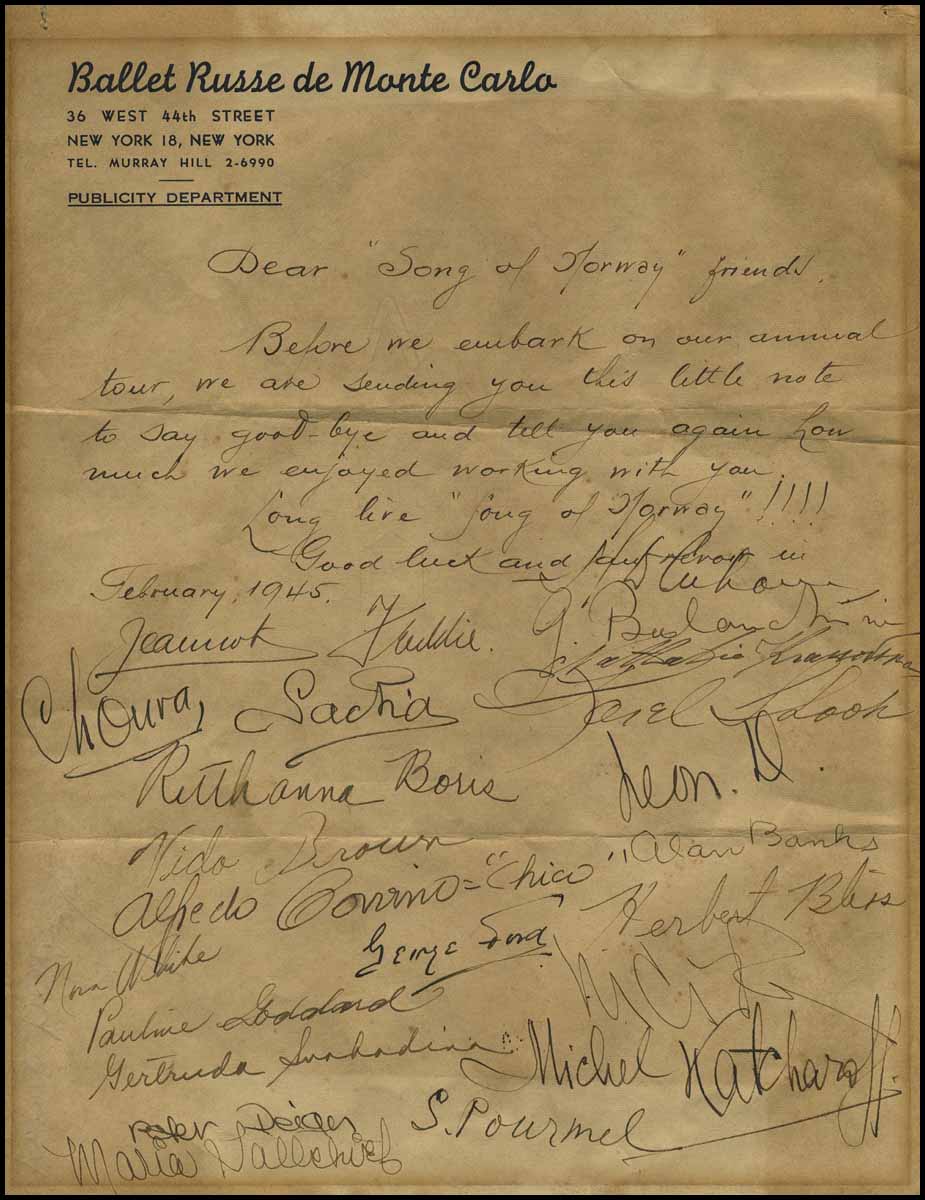 Ballet Russe de Monte Carlo
36 WEST 44th STREET
NEW YORK 18, NEW YORK
TEL. MURRAY HILL 2-6990
PUBLICITY DEPARTMENT
Dear "Song of Norway" friends,
Before we embark on our annual
tour, we are sending you this little note
to say good-bye and tell you again how
much we enjoyed working with you.
Long live "Song of Norway" !!!!
Good luck and in
February, 1945.
Jeannot Freddie.
Choura, Sacha
Ruthanna Boris Leon. D.
Vida Brown Alan Banks
Alfredo Corvino = "Chico" Herbert Bliss
Nora White George Ford
Pauline Goddard
Gertruda Svobodina Michel Katcharoff.
S. Pourmel
Maria Tallchief